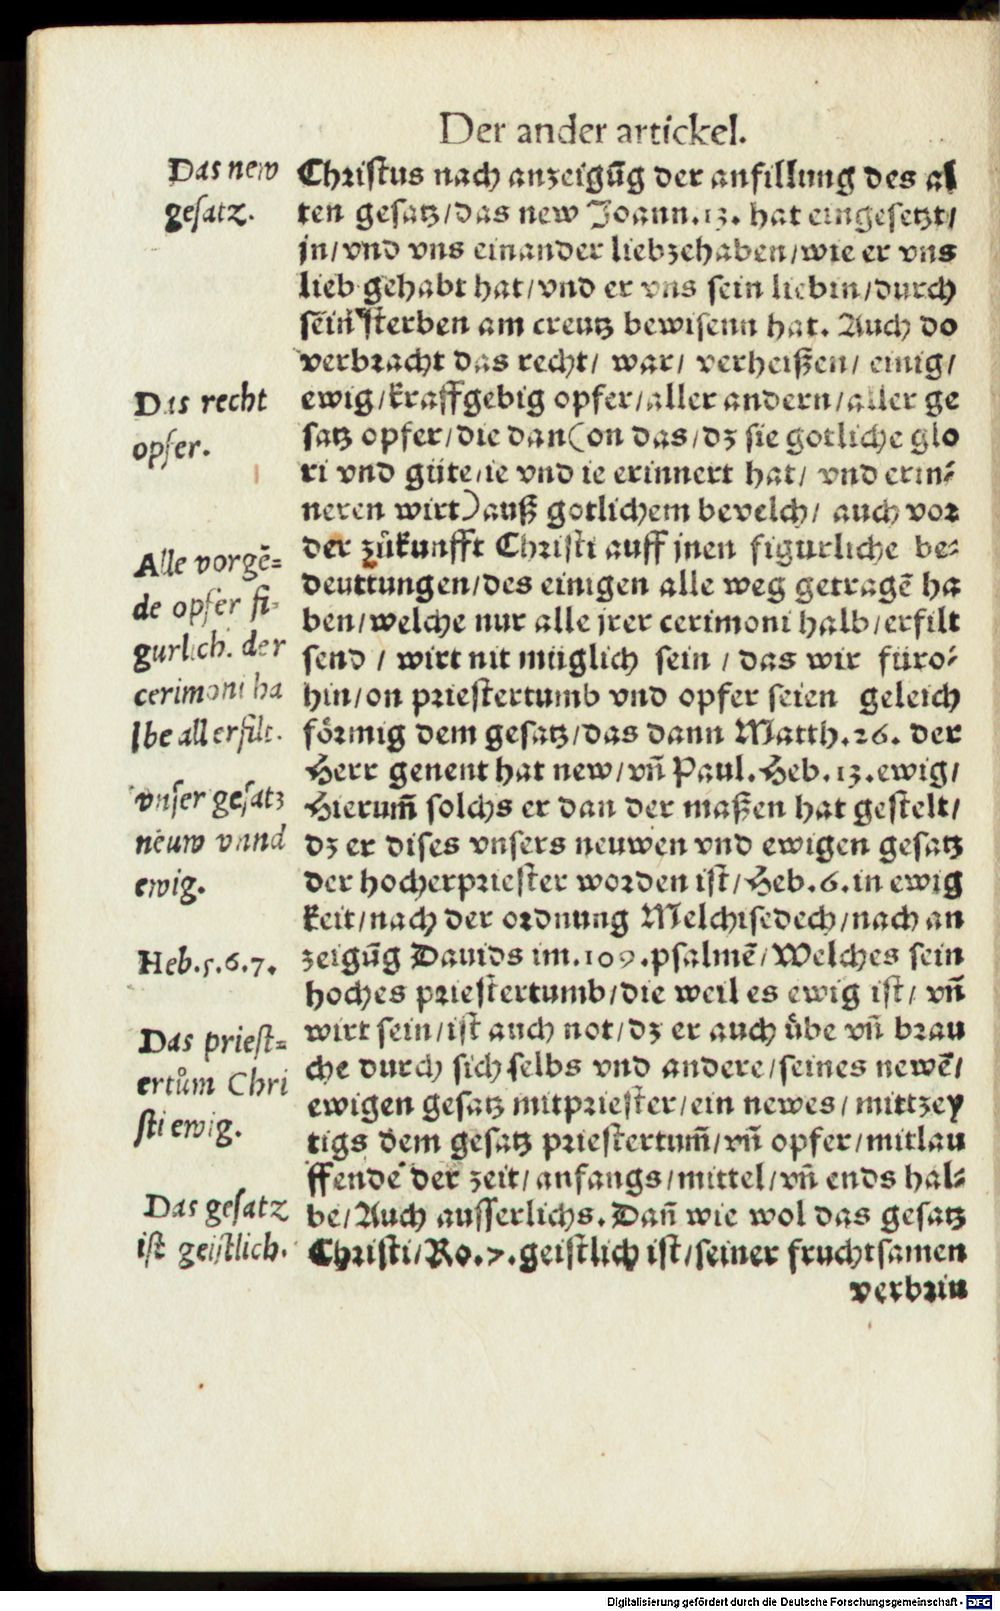 Der ander artickel.
Das new
gesatz.
Christus nach anzeigūg der anfillung des al
ten gesatz/das new Joann.13. hat eingesetzt/
jn/vnd vns einander liebzehaben/wie er vns
lieb gehabt hat/vnd er vns sein liebin/durch
sein sterben am creutz bewisenn hat. Auch do
verbracht das recht/ war/ verheißen/ einig/
Das recht
opfer.
ewig/kraffgebig opfer/aller andern/aller ge
satz opfer/die dan(on das/dz sie gotliche glo
ri vnd güte/ie vnd ie erinnert hat/ vnd erin⸗
neren wirt)auß gotlichem bevelch/ auch vor
Alle vorgē⸗
de opfer fi⸗
gurlich. der
cerimoni ha
lbe all erfilt.
der zůkunfft Christi auff jnen figurliche be⸗
deuttungen/des einigen alle weg getragē ha
ben/welche nur alle jrer cerimoni halb/erfilt
send / wirt nit müglich sein / das wir füro⸗
hin/on priestertumb vnd opfer seien geleich
förmig dem gesatz/das dann Matth.26. der
Herr genent hat new/vñ Paul.Heb.13.ewig/
vnser gesatz
neuw vnnd
ewig.
Hierum̄ solchs er dan der maßen hat gestelt/
dz er dises vnsers neuwen vnd ewigen gesatz
der hocherpriester worden ist/Heb.6.in ewig
keit/nach der ordnung Melchisedech/nach an
Heb.5.6.7.
zeigūg Dauids im.109.psalmē/Welches sein
hoches priestertumb/die weil es ewig ist/ vñ
Das priest⸗
ertům Chri
sti ewig.
wirt sein/ist auch not/dz er auch ůbe vñ brau
che durch sich selbs vnd andere/seines newē/
ewigen gesatz mitpriester/ein newes/ mittzey
tigs dem gesatz priestertum̄/vñ opfer/mitlau
ffende der zeit/anfangs/mittel/vñ ends hal⸗
Das gesatz
ist geistlich.
be/Auch ausserlichs. Dañ wie wol das gesatz
Christi/Ro.7.geistlich ist/seiner fruchtsamen
verbrin
Digitalisierung gefördert durch die Deutsche Forschungsgemeinschaft - DFG